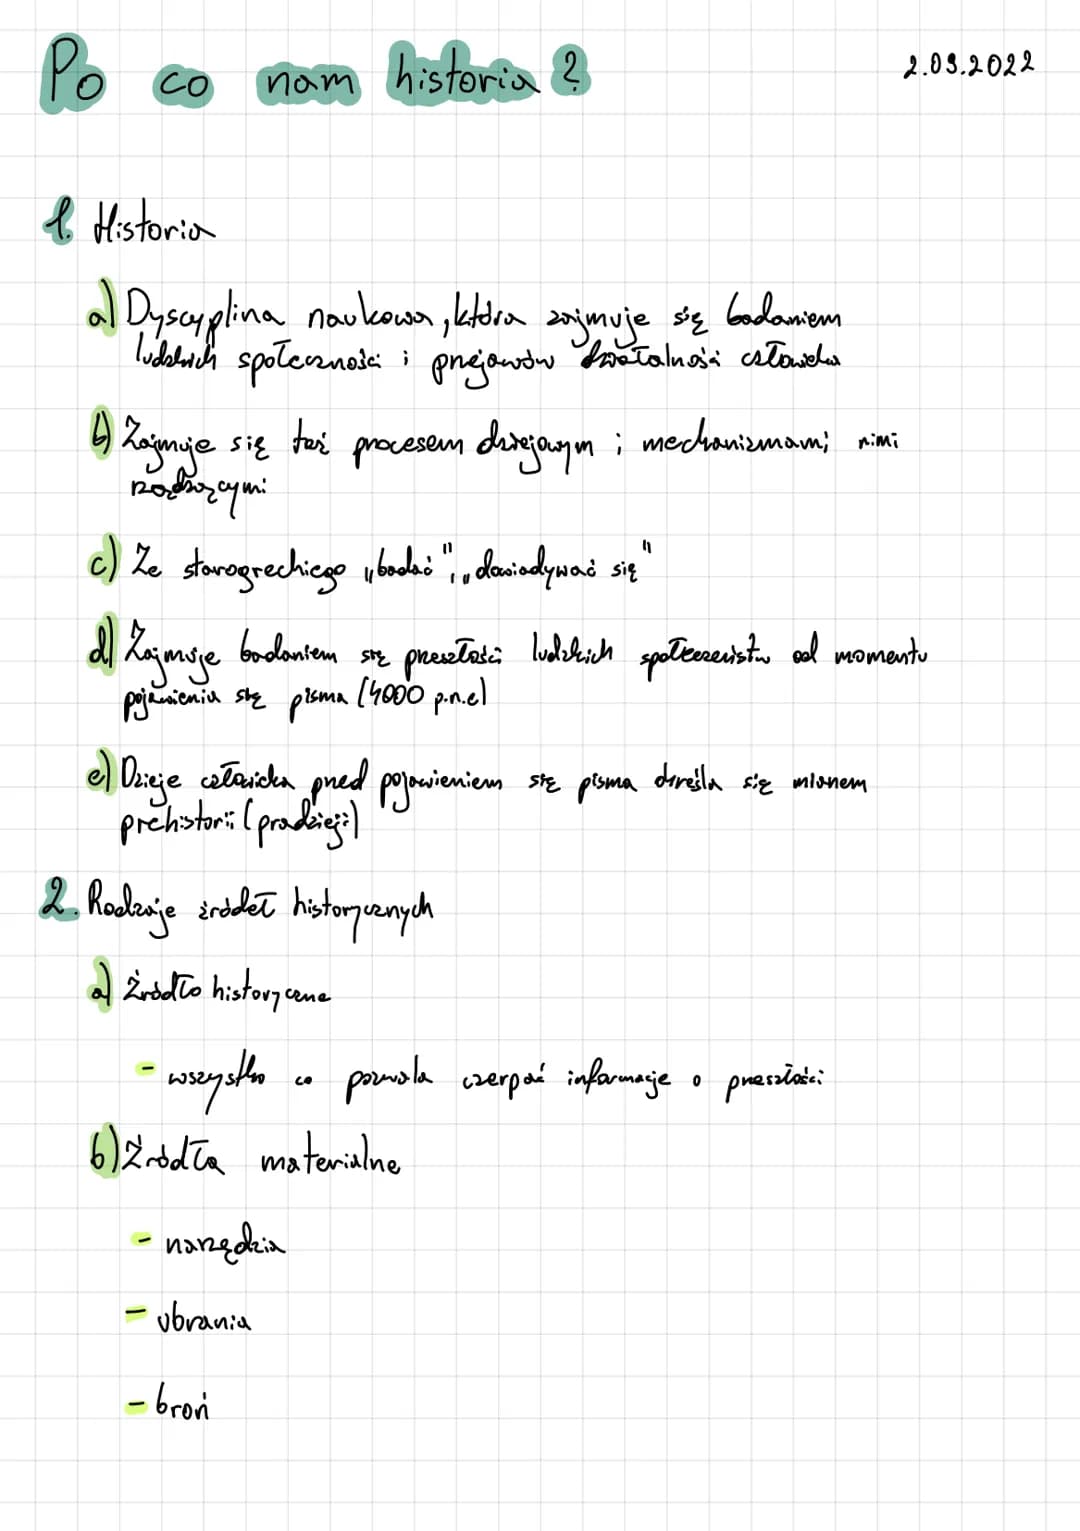 Po co nam historia?
2.09.2022
1. Historia
a) Dyscyplina naukowa, która zajmuje się badaniem
ludzkich społeczności i przejawów działalności człowieka
b) Zajmuje się też procesem dziejowym i mechanizmami nimi
rządzącymi
c) Ze starogreckiego „badać", „dowiadywać się"
d) Zajmuje badaniem się przeszłości ludzkich społeczeństw od momentu
pojawienia się pisma (4000 p.n.e)
e) Dzieje człowieka przed pojawieniem się pisma określa się mianem
prehistorii (pradzieji)
2. Rodzaje źródeł historycznych
a) Źródło historyczne
- wszystko co pozwala czerpać informacje o przeszłości
b) Źródła materialne
- narzędzia
- ubrania
- broń